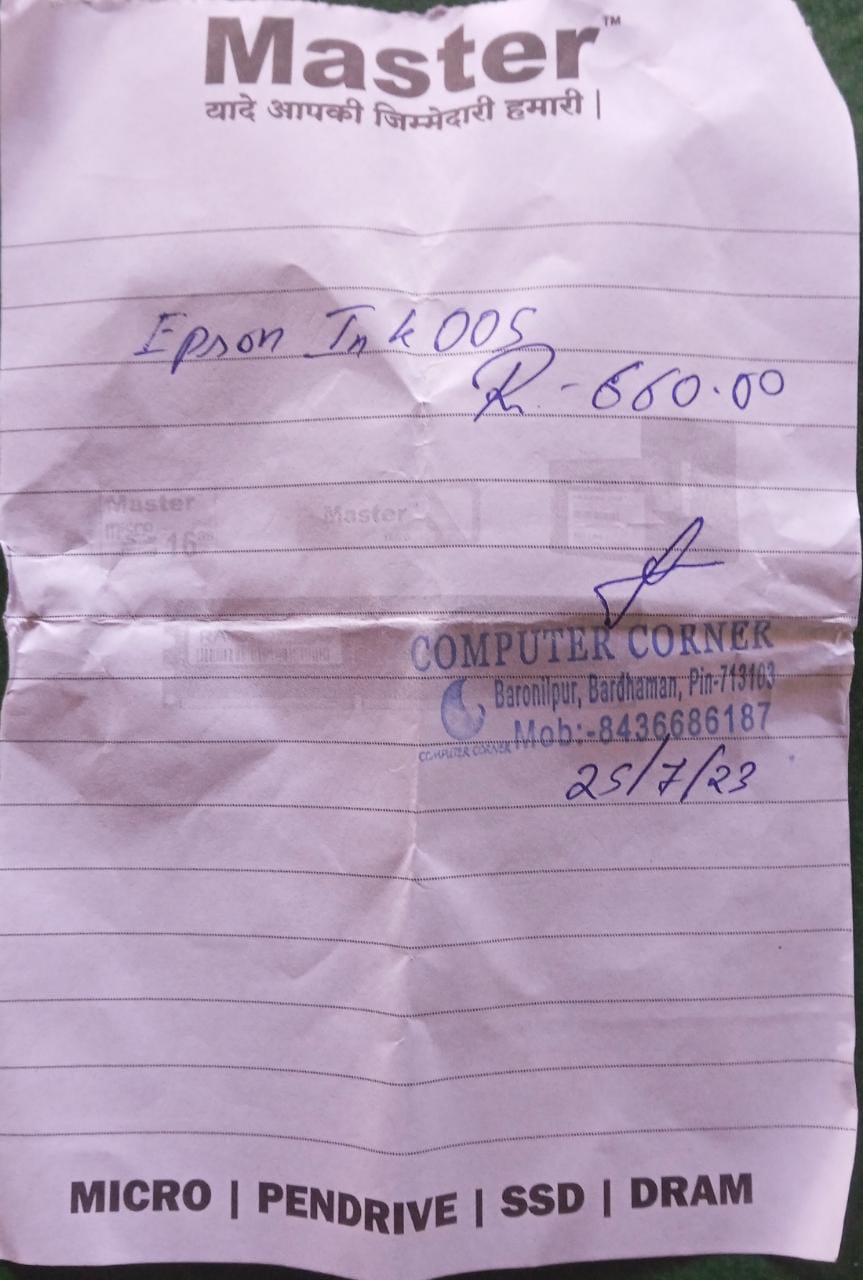 Master™
यादे आपकी जिम्मेदारी हमारी |
Epson Ink 005
R. - 660.00
Master
micro
16
Master
COMPUTER CORNER
Baronilpur, Bardhaman, Pin-713103
Mob:-8436686187
COMPUTER CORNER
25/7/23
MICRO | PENDRIVE | SSD | DRAM